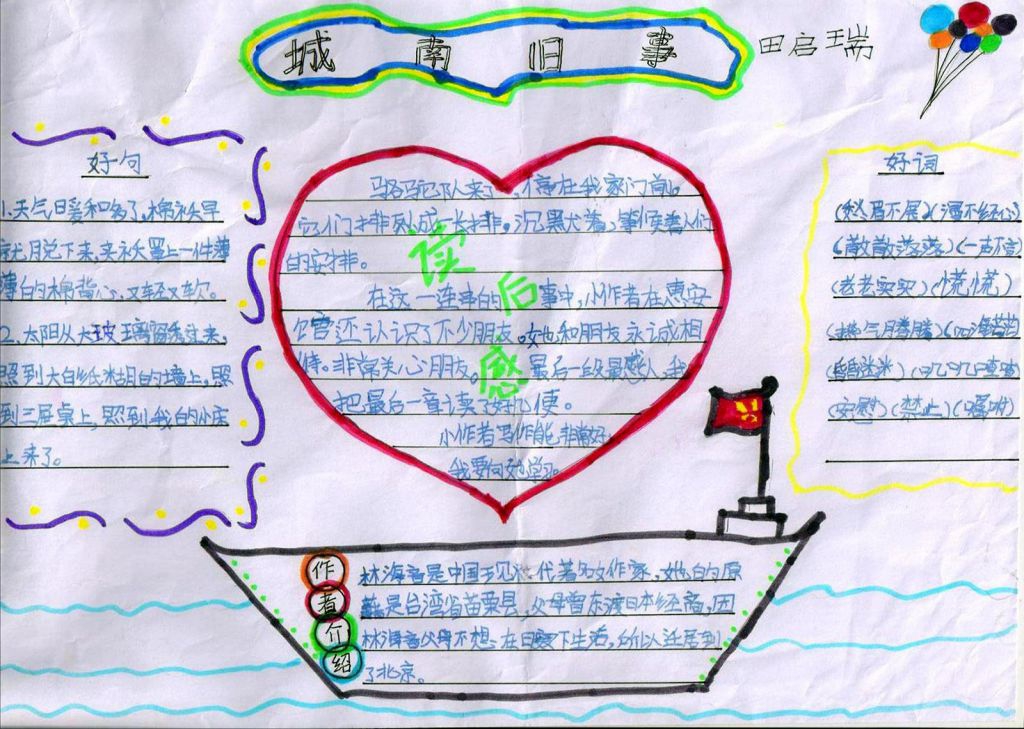 城南旧事
田启瑞
好句
1.天气日爰和多了,棉袄早
就脱下来,夹袄罩上一件薄
薄的棉背心,又轻又软。
2.太阳从大玻璃窗透进来,
照到大白纸糊的墙上,照
到三屉桌上,照到我的小床
上来了。
读后感
骆驼队来了,停在我家门前。
它们排列成一长排,沉默犬着,等候着人们
的安排。
在这一连串的事中,小作者在惠安
馆还认识了不少朋友。她和朋友永诚相
待。非常关心朋友。最后一段最感人,我
把最后一章读了好几便。
小作者写作能非常好,
我要向她学习。
好词
(愁眉不展)(漫不经心)
(散散落落)(一声不言)
(老老实实)(慌慌)
(热气腾腾)
(安慰)(禁止)
作者介绍
林海音是中国现代著名女作家,她的原
籍是台湾省苗栗县,父母曾东渡日本经商,因
林海音父母不想在日寇下生活,所以迁居到
了北京。